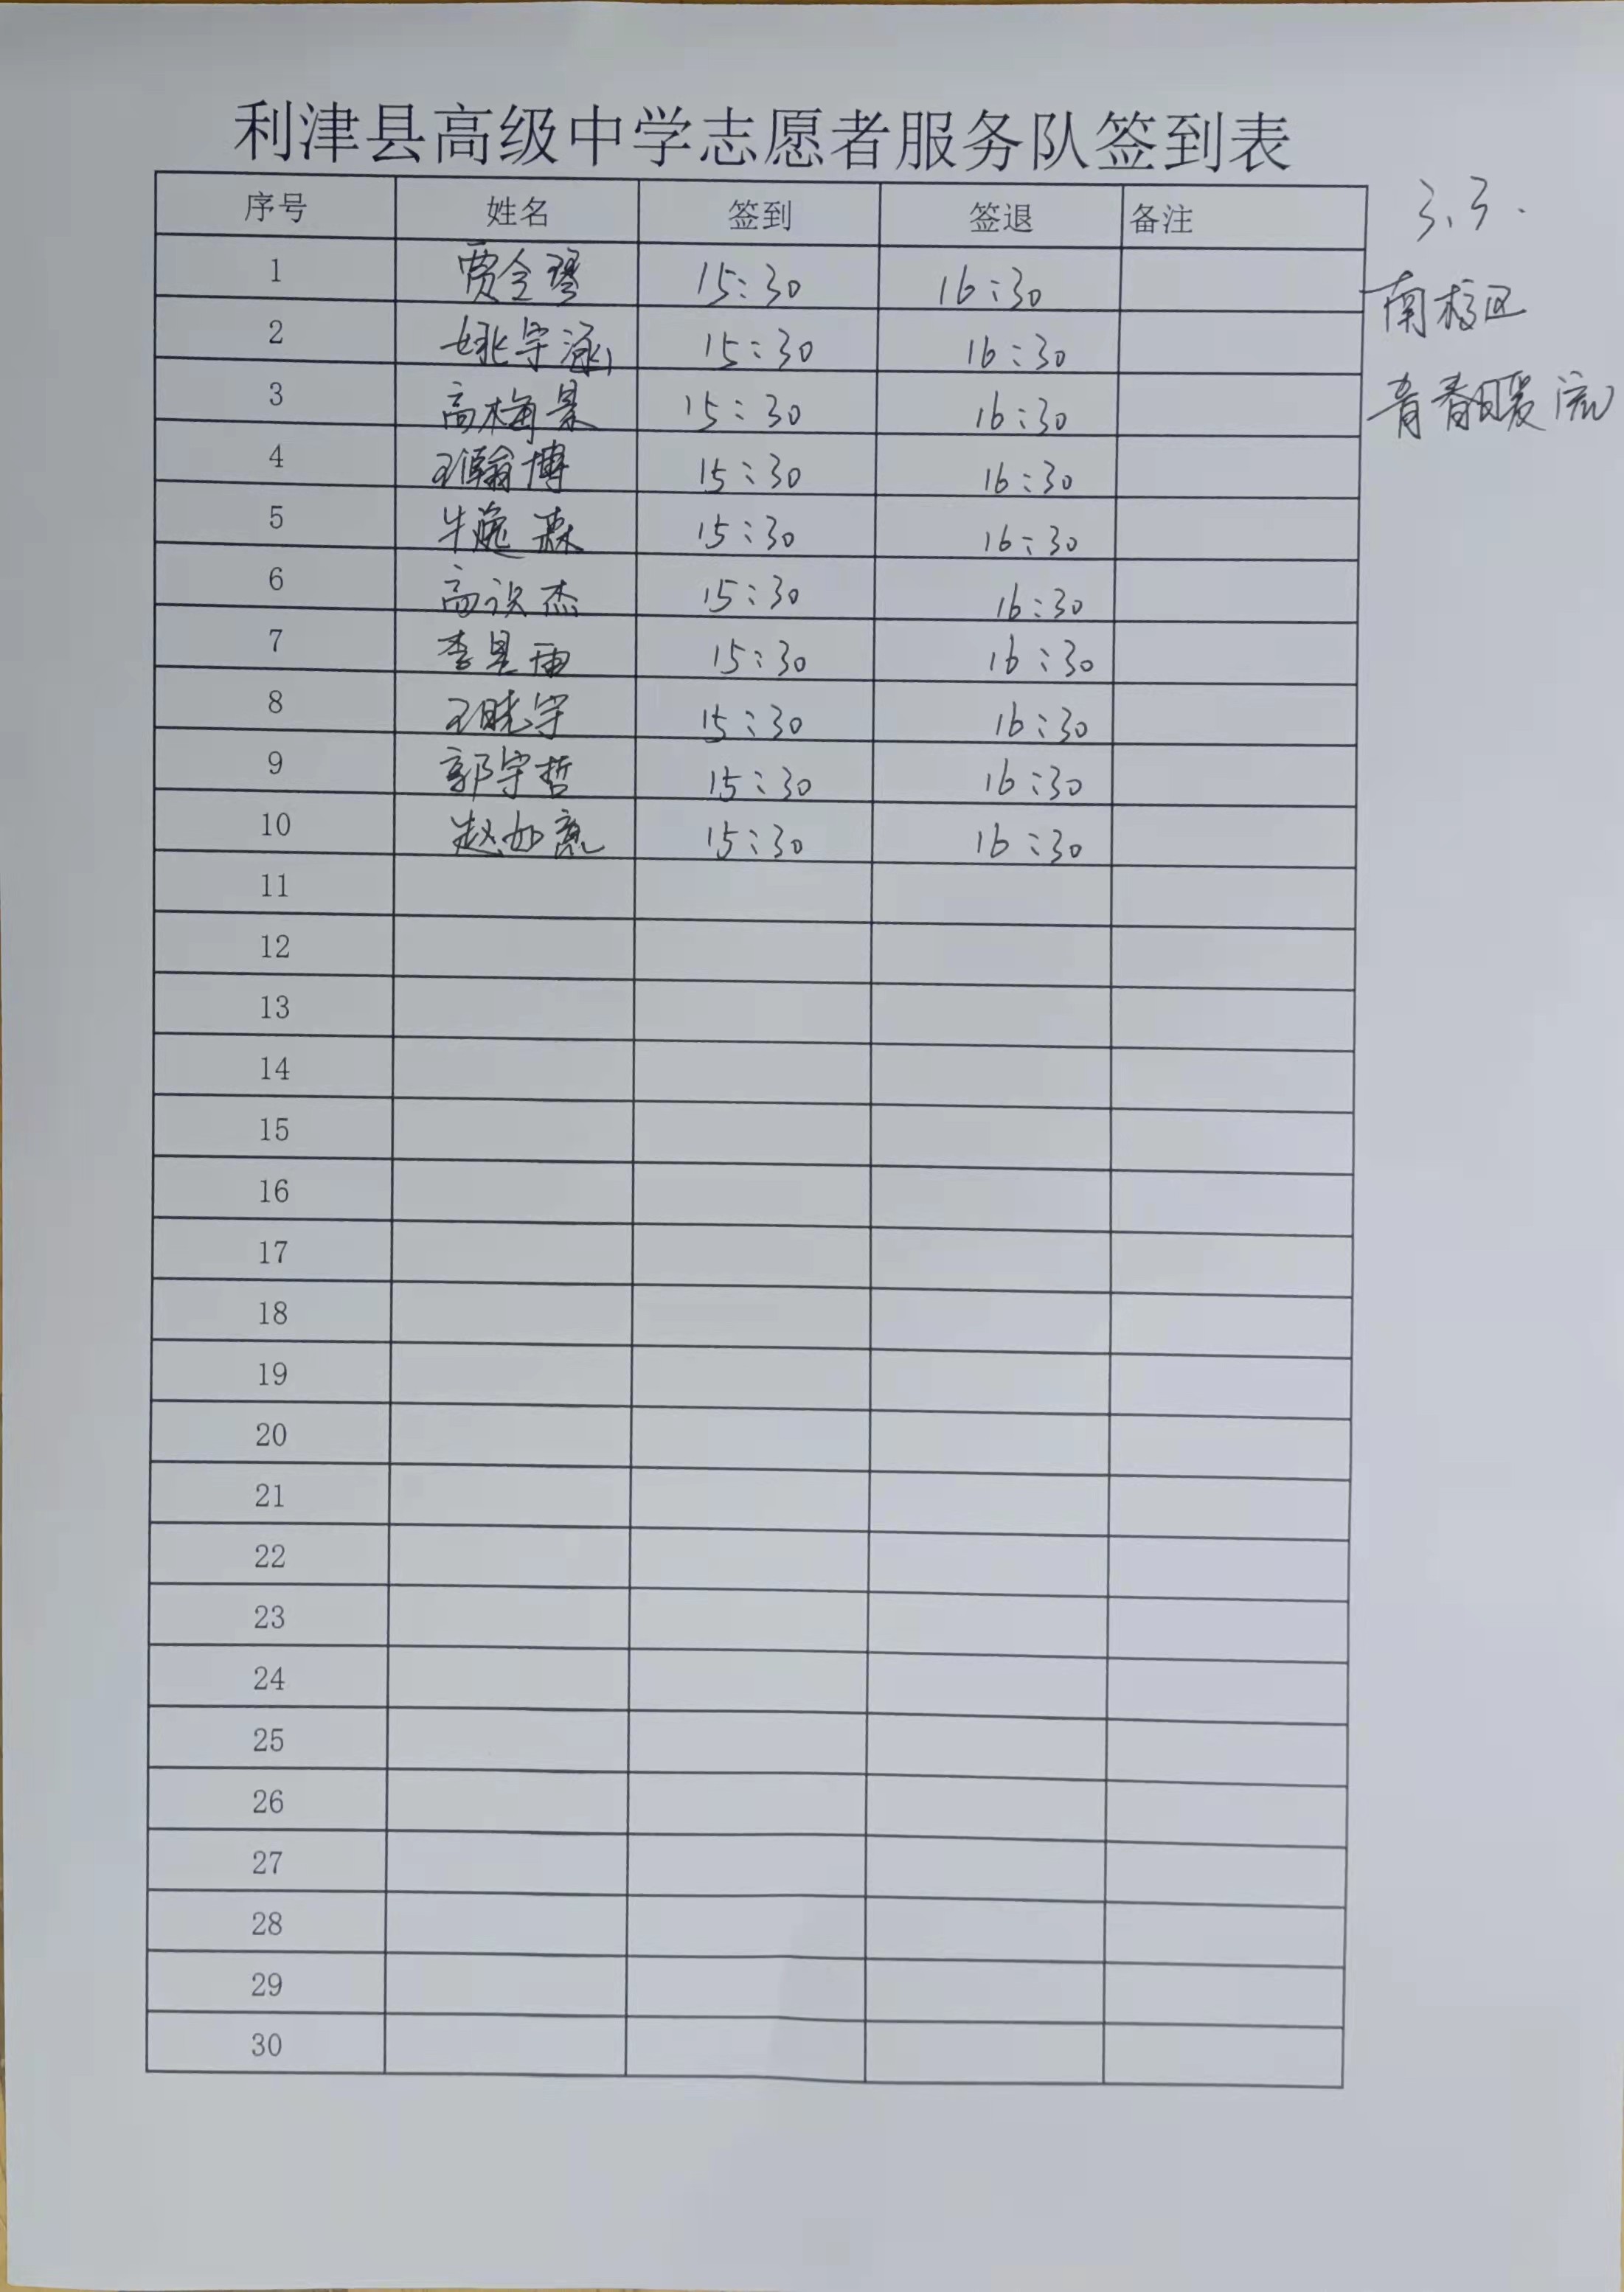 利津县高级中学志愿者服务队签到表
序号 姓名 签到 签退 备注
3.3.
南校区
青春暖流
1 贾令琴 15:30 16:30
2 姚宇涵 15:30 16:30
3 高梅景 15:30 16:30
4 王翰博 15:30 16:30
5 牛逸霖 15:30 16:30
6 高洪杰 15:30 16:30
7 李昱雨 15:30 16:30
8 王晓宇 15:30 16:30
9 郭宇哲 15:30 16:30
10 赵如意 15:30 16:30
11
12
13
14
15
16
17
18
19
20
21
22
23
24
25
26
27
28
29
30